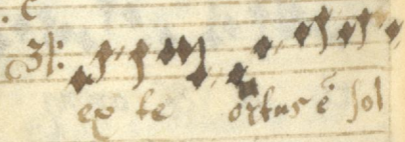 ex te ortus ē sol